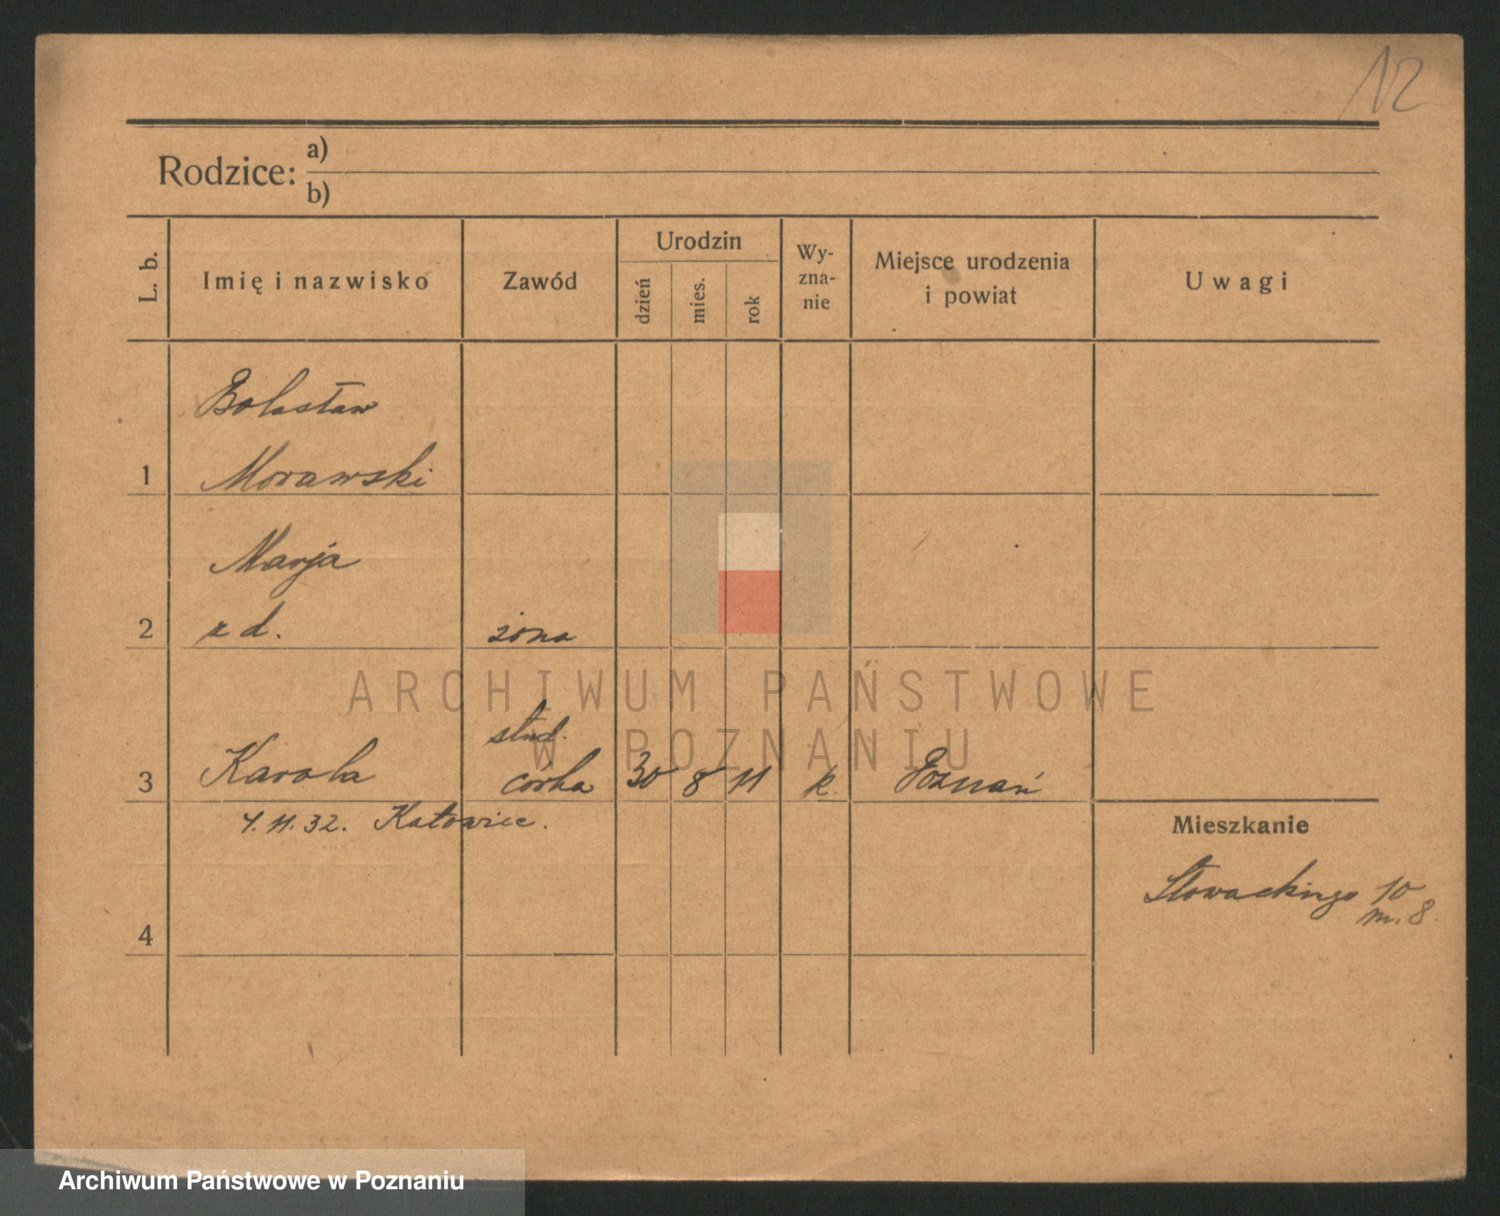 12
Rodzice: a)
b)
L. b.
Imię i nazwisko
Zawód
Urodzin
dzień
mies.
rok
Wy-
zna-
nie
Miejsce urodzenia
i powiat
Uwagi
Bolesław
1 Morawski
Marja
2 z d. żona
stud.
3 Karola córka 30 8 11 k. Poznań
4.11.32. Katowice.
Mieszkanie
Słowackiego 10
m. 8.
4
ARCHIWUM PAŃSTWOWE
W POZNANIU
Archiwum Państwowe w Poznaniu